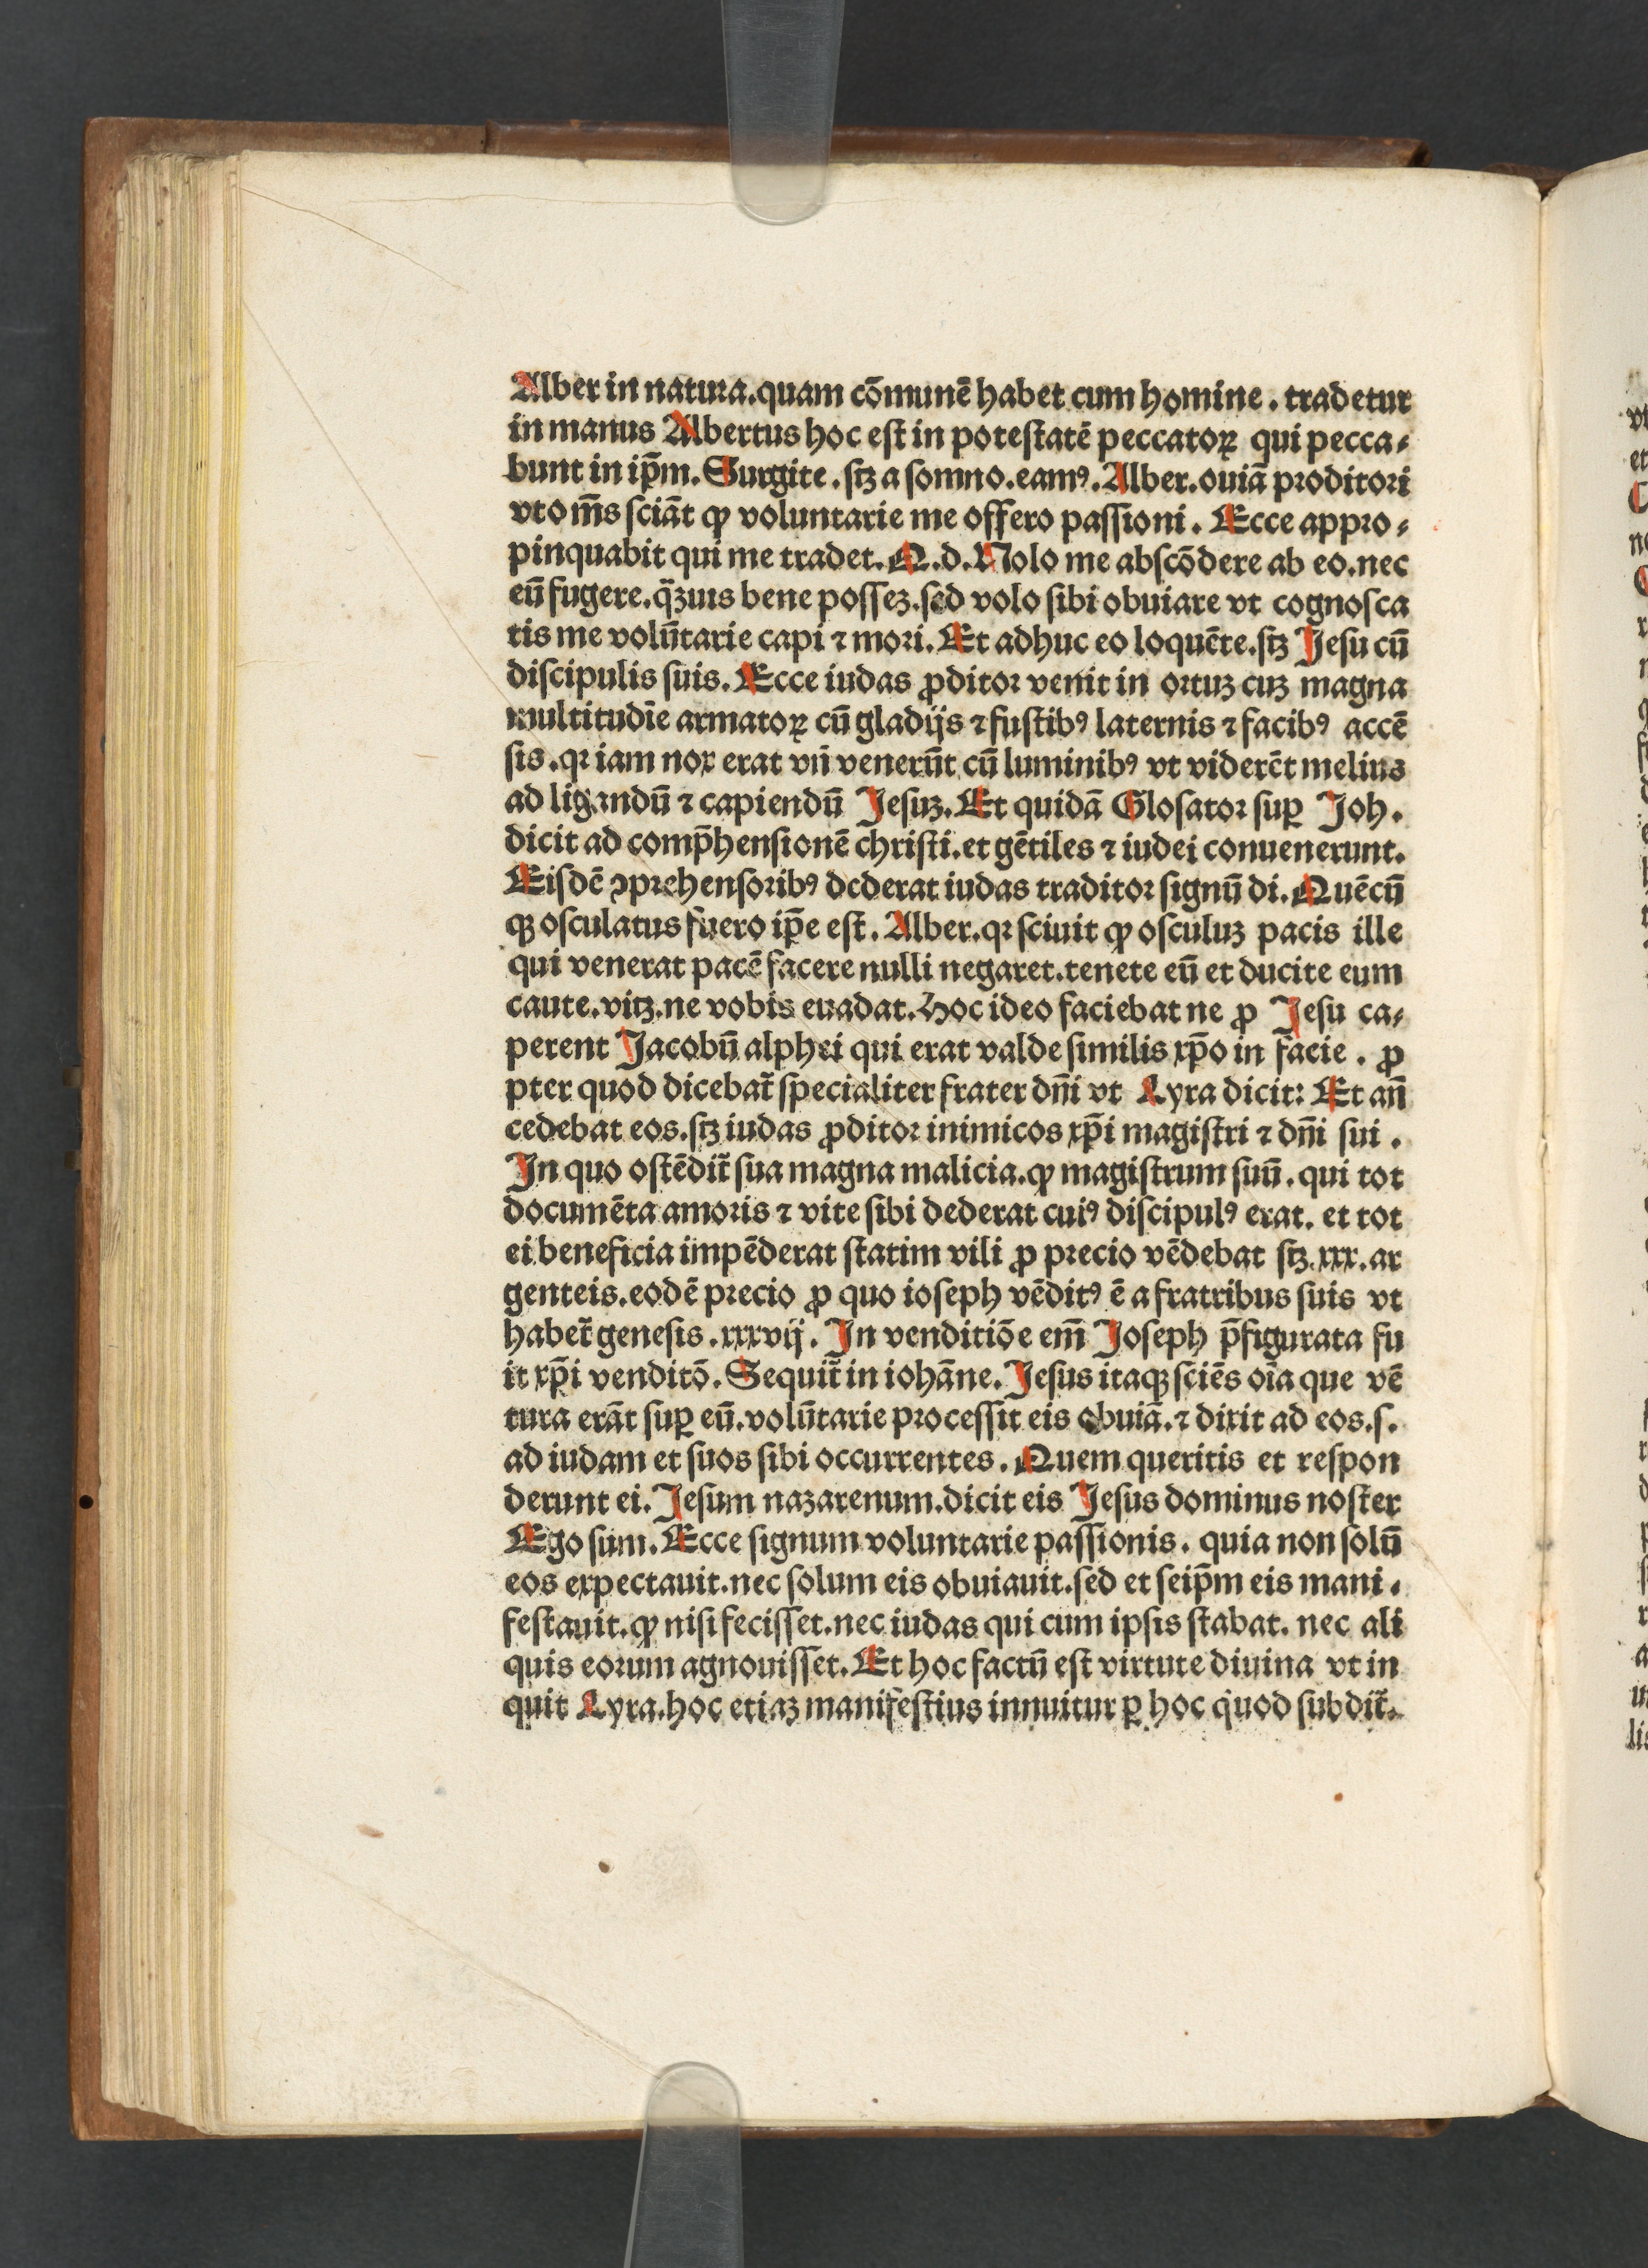 Alber in natura.quam cōmunē habet cum homine . tradetur
in manus Albertus hoc eſt in poteſtatē peccatoꝝ qui pecca⸗
bunt in ip̄m. Surgite . ſꝫ a ſomno.eamꝰ. Alber. ouiā proditori
vt om̄s ſciāt ꝙ voluntarie me offero paſſioni . Ecce appro⸗
pinquabit qui me tradet. Q.d. Nolo me abſcōdere ab eo.nec
eū fugere.q̄ꝫuis bene poſſeꝫ.ſed volo ſibi obuiare vt cognoſca
tis me volūtarie capi ⁊ mori. Et adhuc eo loquēte.ſꝫ Jeſu cū
diſcipulis ſuis. Ecce iudas ꝓditor venit in ortuꝫ cuꝫ magna
multitudīe armatoꝝ cū gladijs ⁊ fuſtibꝰ laternis ⁊ facibꝰ accē
ſis .qꝛ iam nox erat vn̄ venerūt cū luminibꝰ vt viderēt melius
ad ligandū ⁊ capiendū Jeſuꝫ. Et quidā Gloſator ſuꝑ Joh.
dicit ad comp̄henſionē chriſti.et gētiles ⁊ iudei conuenerunt.
Eiſdē ꝯprehenſoribꝰ dederat iudas traditor ſignū di. Quēcū
qꝫ oſculatus fuero ip̄e eſt. Alber.qꝛ ſciuit ꝙ oſculuꝫ pacis ille
qui venerat pacē facere nulli negaret.tenete eū et ducite eum
caute.vitꝫ.ne vobis euadat. Hoc ideo faciebat ne ꝓ Jeſu ca⸗
perent Jacobū alphei qui erat valde ſimilis xp̄o in facie . ꝓ
pter quod dicebat̄ ſpecialiter frater dn̄i vt Lyra dicit: Et an̄
cedebat eos.ſꝫ iudas ꝓditor inimicos xp̄i magiſtri ⁊ dn̄i ſui .
In quo oſtēdit̄ ſua magna malicia.ꝙ magiſtrum ſuū. qui tot
documēta amoris ⁊ vite ſibi dederat cuiꝰ diſcipulꝰ erat. et tot
ei beneficia impēderat ſtatim vili ꝓ precio vēdebat ſꝫ.xxx.ar
genteis.eodē precio ꝓ quo ioſeph vēditꝰ ē a fratribus ſuis vt
habet̄ geneſis .xxxvij. In venditiōe em̄ Joſeph p̄figurata fu
it xp̄i venditō. Sequit̄ in iohāne. Jeſus itaqꝫ ſciēs oīa que vē
tura erāt ſuꝑ eū.volūtarie proceſſit eis obuiā.⁊ dixit ad eos.ſ.
ad iudam et ſuos ſibi occurrentes. Quem queritis et reſpon
derunt ei. Jeſum nazarenum.dicit eis Jeſus dominus noſter
Ego ſum. Ecce ſignum voluntarie paſſionis. quia non ſolū
eos expectauit.nec ſolum eis obuiauit.ſed et ſeip̄m eis mani⸗
feſtauit.ꝙ niſi feciſſet.nec iudas qui cum ipſis ſtabat. nec ali
quis eorum agnouiſſet. Et hoc factū eſt virtute diuina vt in
quit Lyra.hoc etiaꝫ manifeſtius innuitur ꝑ hoc quod ſubdit̄.